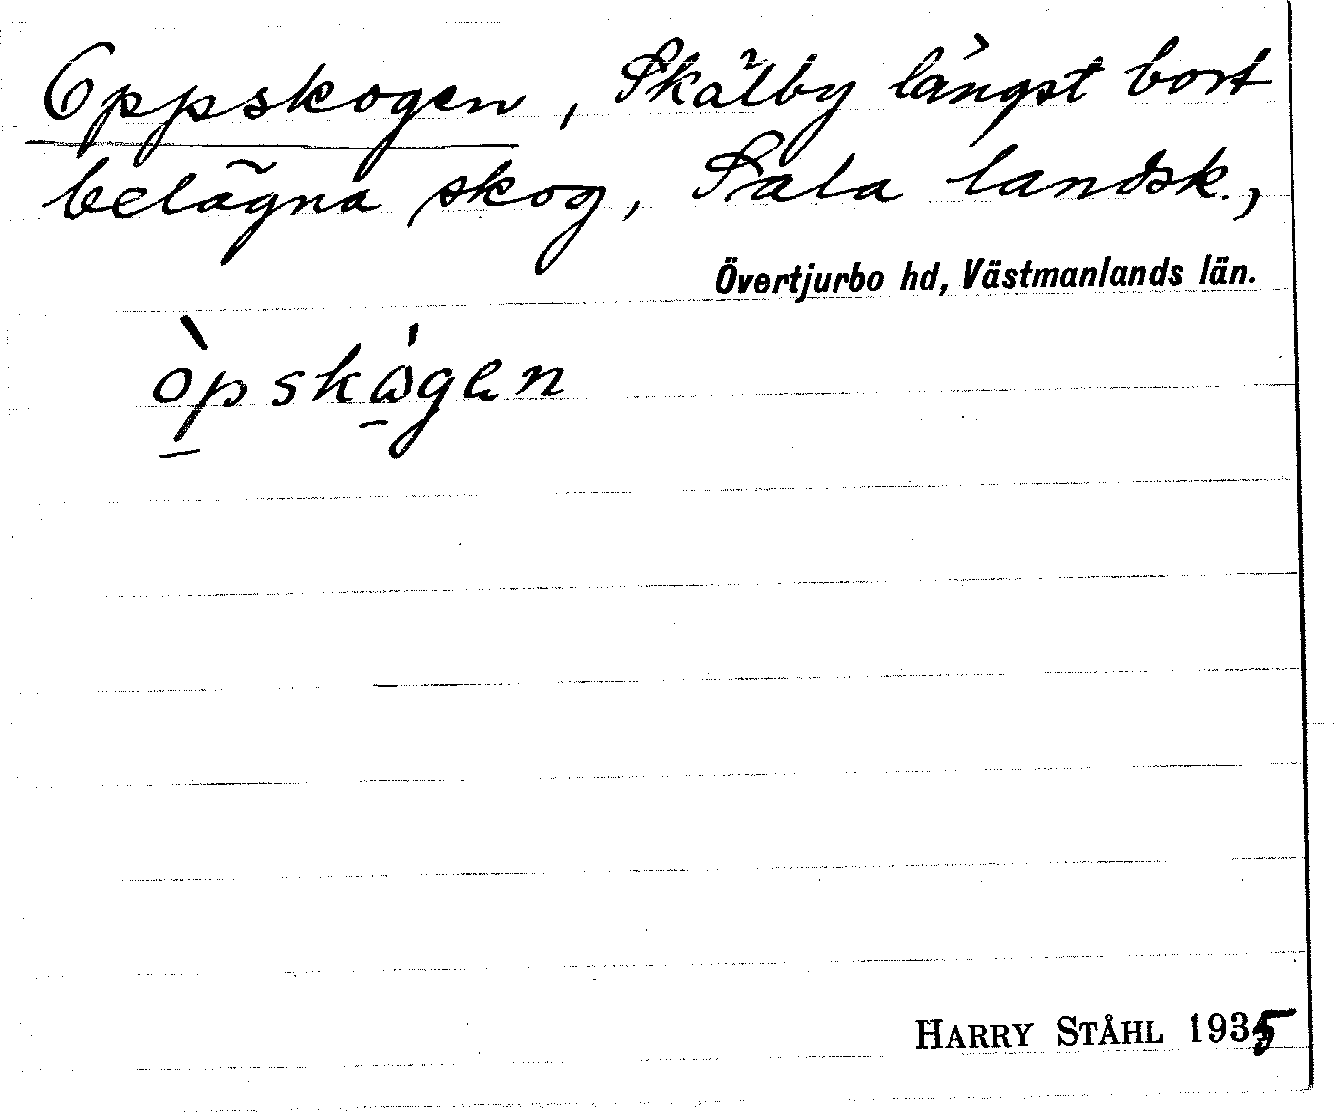 Oppskogen, Skälby längst bort
belägna skog, Sala landsk.,
Övertjurbo hd, Västmanlands län.
òpskógen
HARRY STÅHL 1935